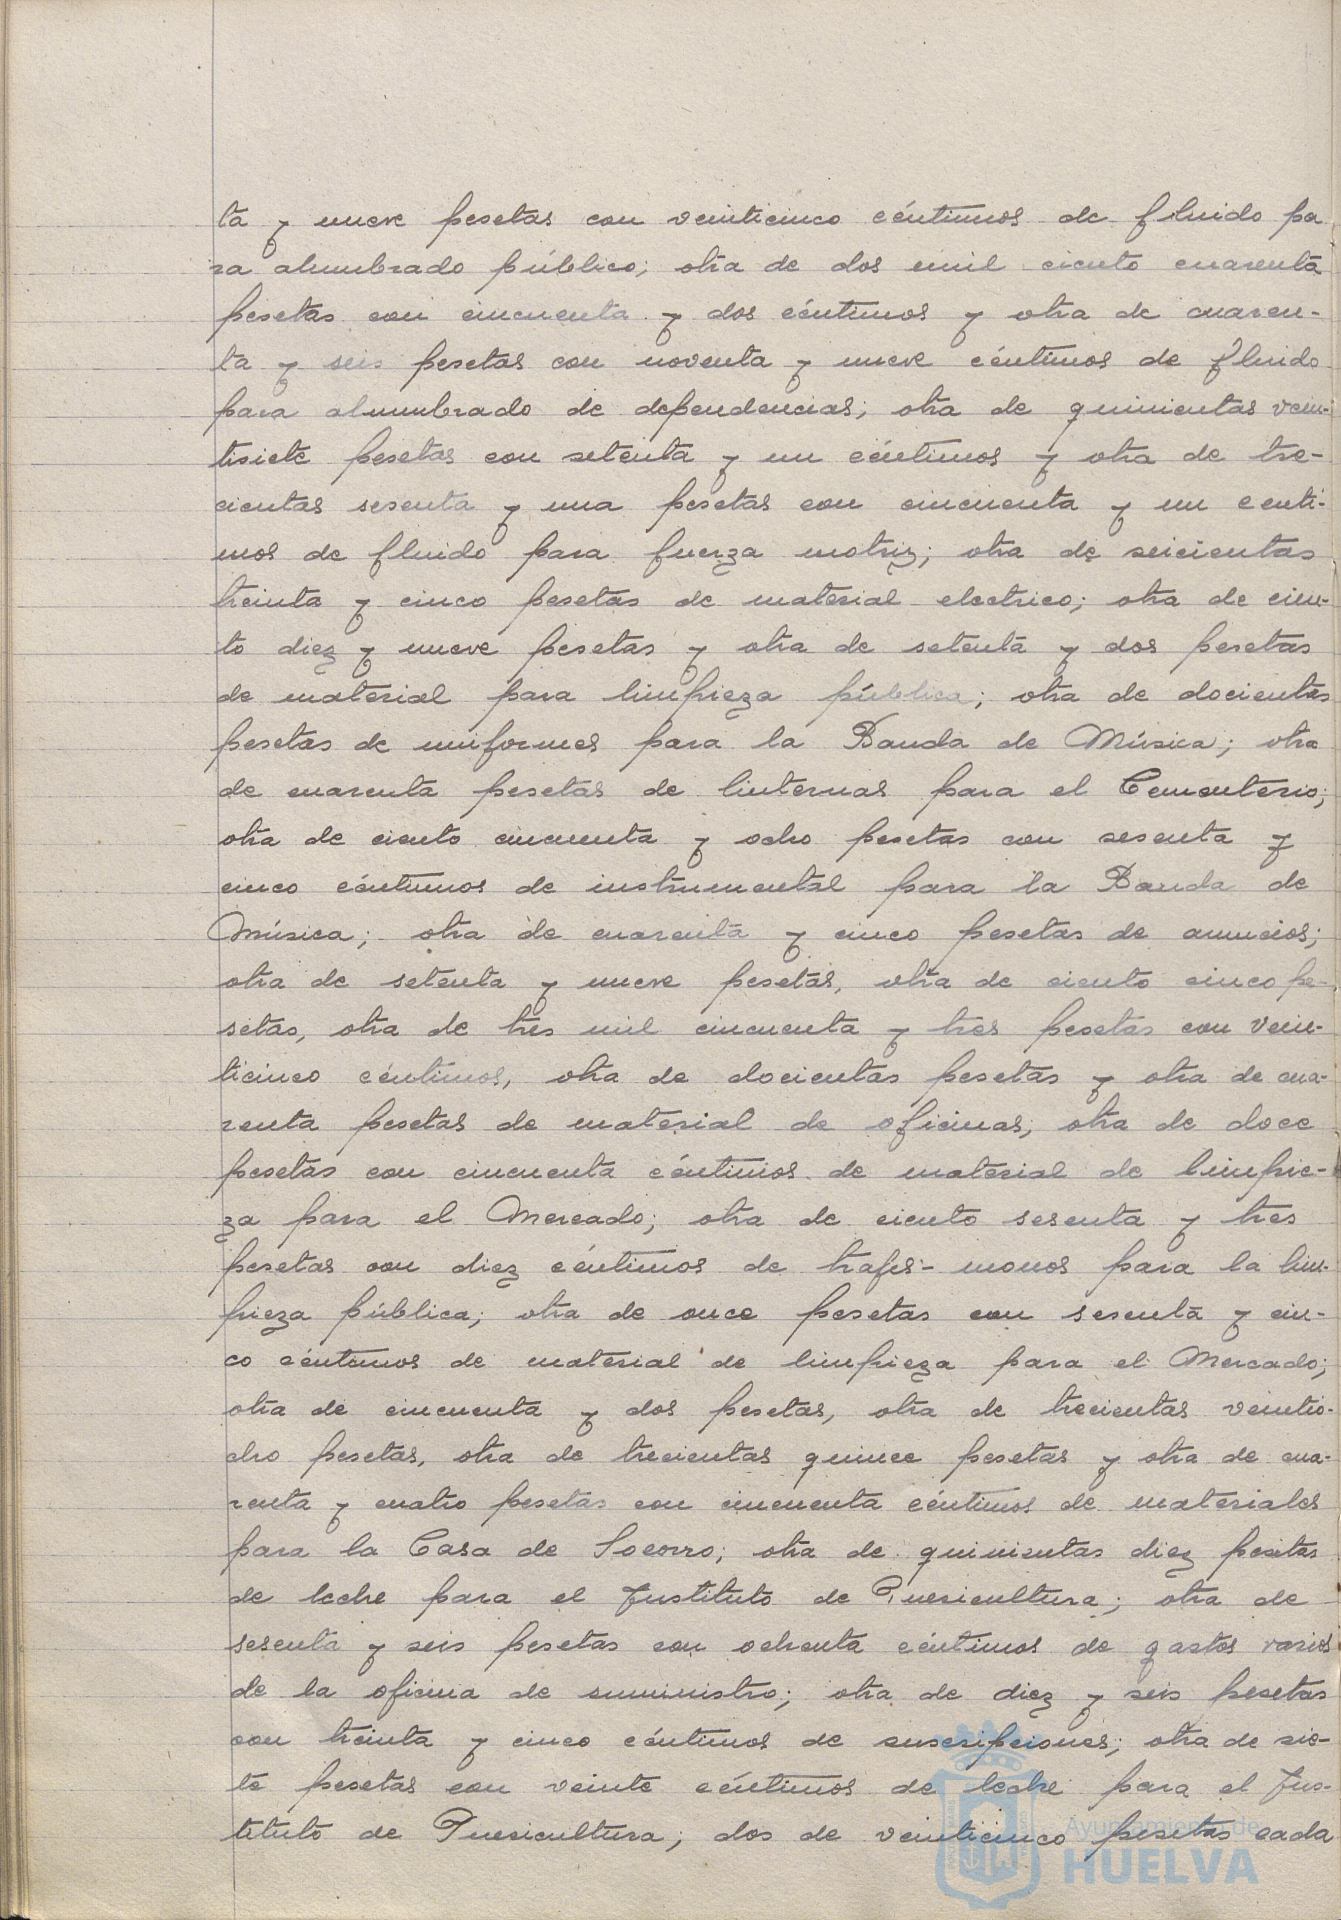 ta y nueve pesetas con veinticinco céntimos de fluido pa
ra alumbrado público; otra de dos mil ciento cuarenta
pesetas con cincuenta y dos céntimos y otra de cuaren-
ta y seis pesetas con noventa y nueve céntimos de fluido
para alumbrado de dependencias; otra de quinientas vein-
tisiete pesetas con setenta y un céntimos y otra de tre-
cientas sesenta y una pesetas con cincuenta y un cénti-
mos de fluido para fuerza motriz; otra de seicientas
treinta y cinco pesetas de material electrico; otra de cien-
to diez y nueve pesetas y otra de setenta y dos pesetas
de material para limpieza pública; otra de docientas
pesetas de uniformes para la Banda de Música; otra
de cuarenta pesetas de linternas para el Cementerio;
otra de ciento cincuenta y ocho pesetas con sesenta y
cinco céntimos de instrumental para la Banda de
Música; otra de cuarenta y cinco pesetas de anuncios;
otra de setenta y nueve pesetas, otra de ciento cinco pe-
setas, otra de tres mil cincuenta y tres pesetas con vein-
ticinco céntimos, otra de docientas pesetas y otra de cua-
renta pesetas de material de oficinas; otra de doce
pesetas con cincuenta céntimos de material de limpie-
za para el Mercado; otra de ciento sesenta y tres
pesetas con diez céntimos de trajes-monos para la lim-
pieza pública; otra de once pesetas con sesenta y cin-
co céntimos de material de limpieza para el Mercado;
otra de cincuenta y dos pesetas, otra de trecientas veintio-
cho pesetas, otra de trecientas quince pesetas y otra de cua-
renta y cuatro pesetas con cincuenta céntimos de materiales
para la Casa de Socorro; otra de quinientas diez pesetas
de leche para el Instituto de Puericultura; otra de
sesenta y seis pesetas con ochenta céntimos de gastos varios
de la oficina de suministro; otra de diez y seis pesetas
con treinta y cinco céntimos de suscripciones; otra de sie-
te pesetas con veinte céntimos de leche para el Ins-
tituto de Puericultura; dos de veinticinco pesetas cada
Ayuntamiento de
HUELVA